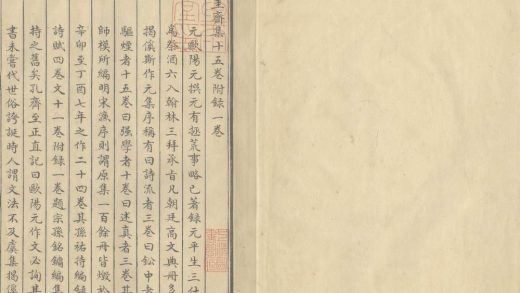 圭齋集十五卷附錄一卷
元歐陽元撰元有拯荒事略已著錄元平生三任
為祭酒六入翰林三拜承旨凡朝廷高文典冊多
揭傒斯作元集序稱有曰詩流者三卷曰鈆中者
驅煙者十五卷曰强學者十卷曰述真者三卷其
師模所編明宋濂序則謂原集一百餘冊皆燬於
辛卯至丁酉七年之作二十四卷其孫祐持編錄
詩賦四卷文十一卷附錄一卷題宗孫銘鏞編集
持之舊矣孔齊至正直記曰歐陽元作文必詢其
書未嘗代世俗誇誕時人謂文法不及虞集揭傒